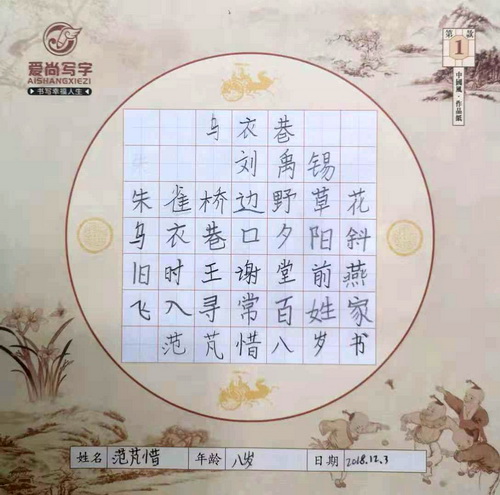 爱尚写字
AISHANGXIEZI
书写幸福人生
第1款
中國風·作品紙
乌衣巷
刘禹锡
朱雀桥边野草花
乌衣巷口夕阳斜
旧时王谢堂前燕
飞入寻常百姓家
范芃惜八岁书
姓名 范芃惜 年龄 八岁 日期 2018.12.3